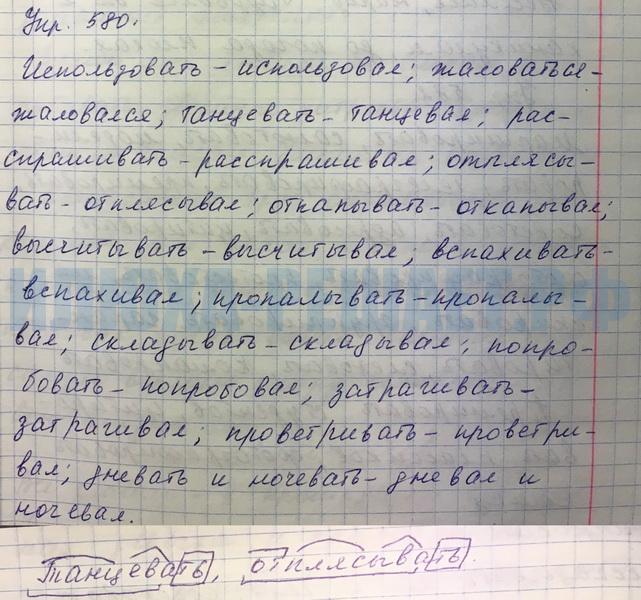 Упр. 580.
Использовать – использовал; жаловаться –
жаловался; танцевать – танцевал; рас-
спрашивать – расспрашивал; отплясы-
вать – отплясывал; откапывать – откапывал;
высчитывать – высчитывал; вспахивать –
вспахивал; пропалывать – пропалы-
вал; складывать – складывал; попро-
бовать – попробовал; затрагивать –
затрагивал; проветривать – проветри-
вал; дневать и ночевать – дневал и
ночевал.
Танцевать, отплясывать.